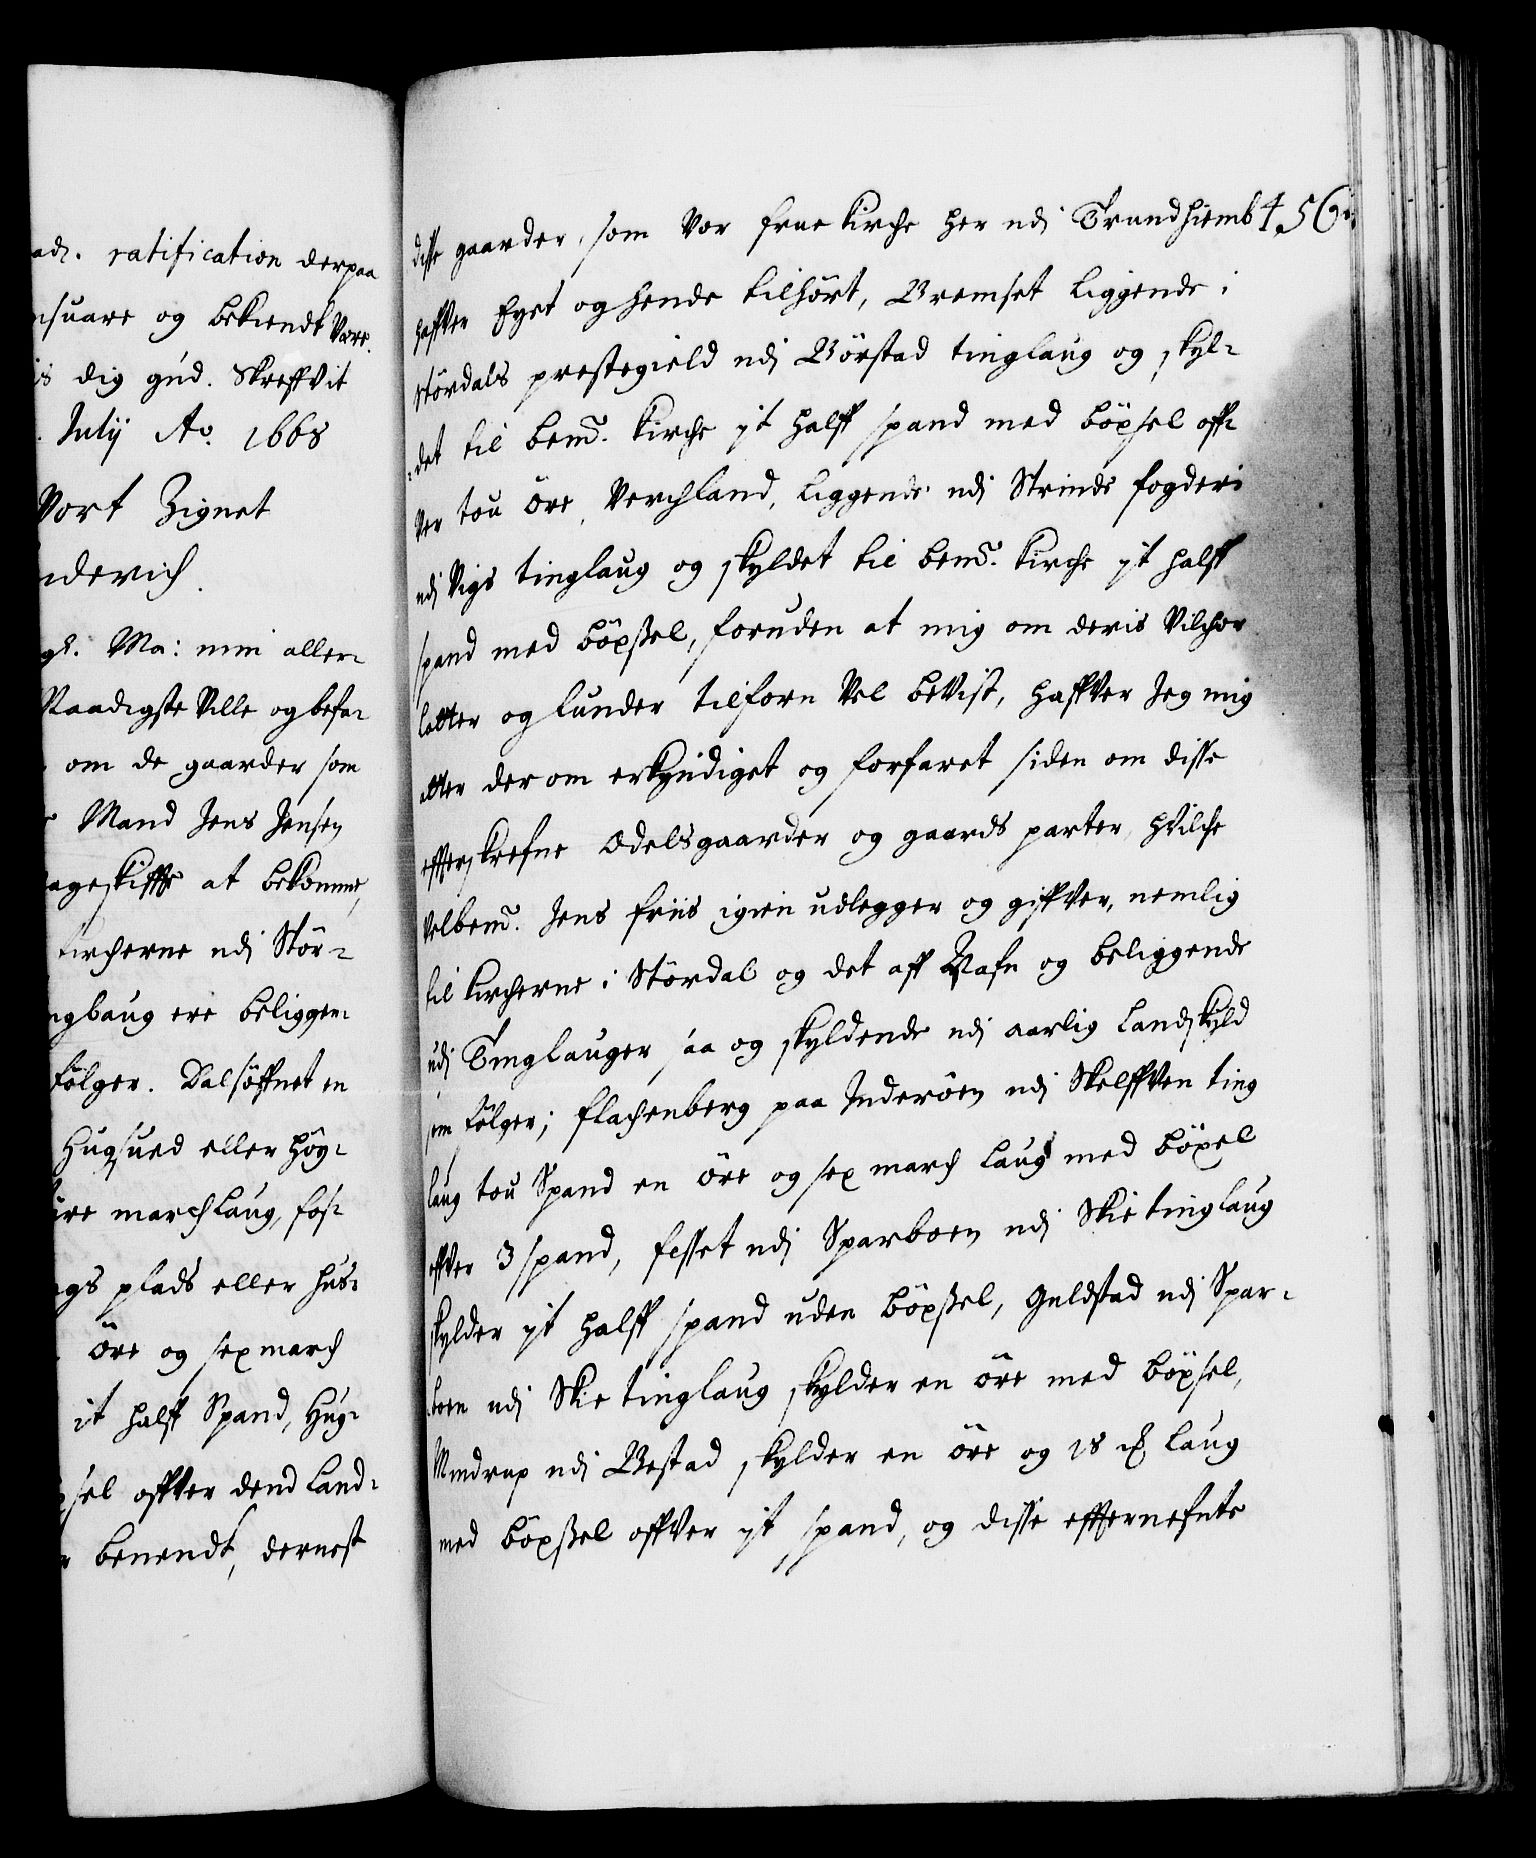 ads. ratification derpaa
nsuare og bekiendt Vore
is dig gud. Skreffvit
. Julij Ao. 1668
Vort Zignet
nderich.
gl. Ma: min aller-
Naadigste Ville og befa-
om de gaarder som
Mand Jens Jensen
ageskiffte at bekomme,
kircherne udj Stör-
ngbaug ere beliggen-
fölger. Dalsöffnet en
Hugsued eller Höy-
öre marchlaug, fos-
ngs plads eller Hus-
öre og sex march
it halff Spand, Hug-
sel offver dend Land-
benendt, dernest
456.
disse gaarder, som Vor frue kirche her udj Trundhiemb
haffver Eyet og hende tilhört, Bremset liggende i
Stördals prestegield udj Börstad tinglaug og skyl-
det til bemt. kirche it halff spand med böxsel off-
ver tou öre, Verchland, liggende udj Strinde fogderi
udj Vigs tinglaug og skyldet til bemt. kirche it halff
spand med böxsel, foruden at mig om deris Vilchor
latter og lunder tilforn Vel beVist, haffver Jeg mig
atter der om erkyndiget og forfaret siden om disse
effterskrefne Odelsgaarder og gaards parter, hVilche
Velbemt. Jens friis igien udlegger og giffver, nemlig
til kircherne i Stördal og det aff Nafn og beliggende
udj Tinglauger saa og skyldende udj aarlig Landskyld
som fölger; flachenberg paa Inderöen udj Skelffven ting
laug tou Spand en öre og sex march laug med böxel
offver 3 spand, fesset udj Sparboen udj Skie tinglaug
skylder it halff spand uden böxsel, Guldstad udj Spar-
boen udj Skie tinglaug skylder en öre med böxsel,
Mindrup udj Bestad skylder en öre og 18 ℔ laug
med böxsel offver it spand, og disse effternefnte